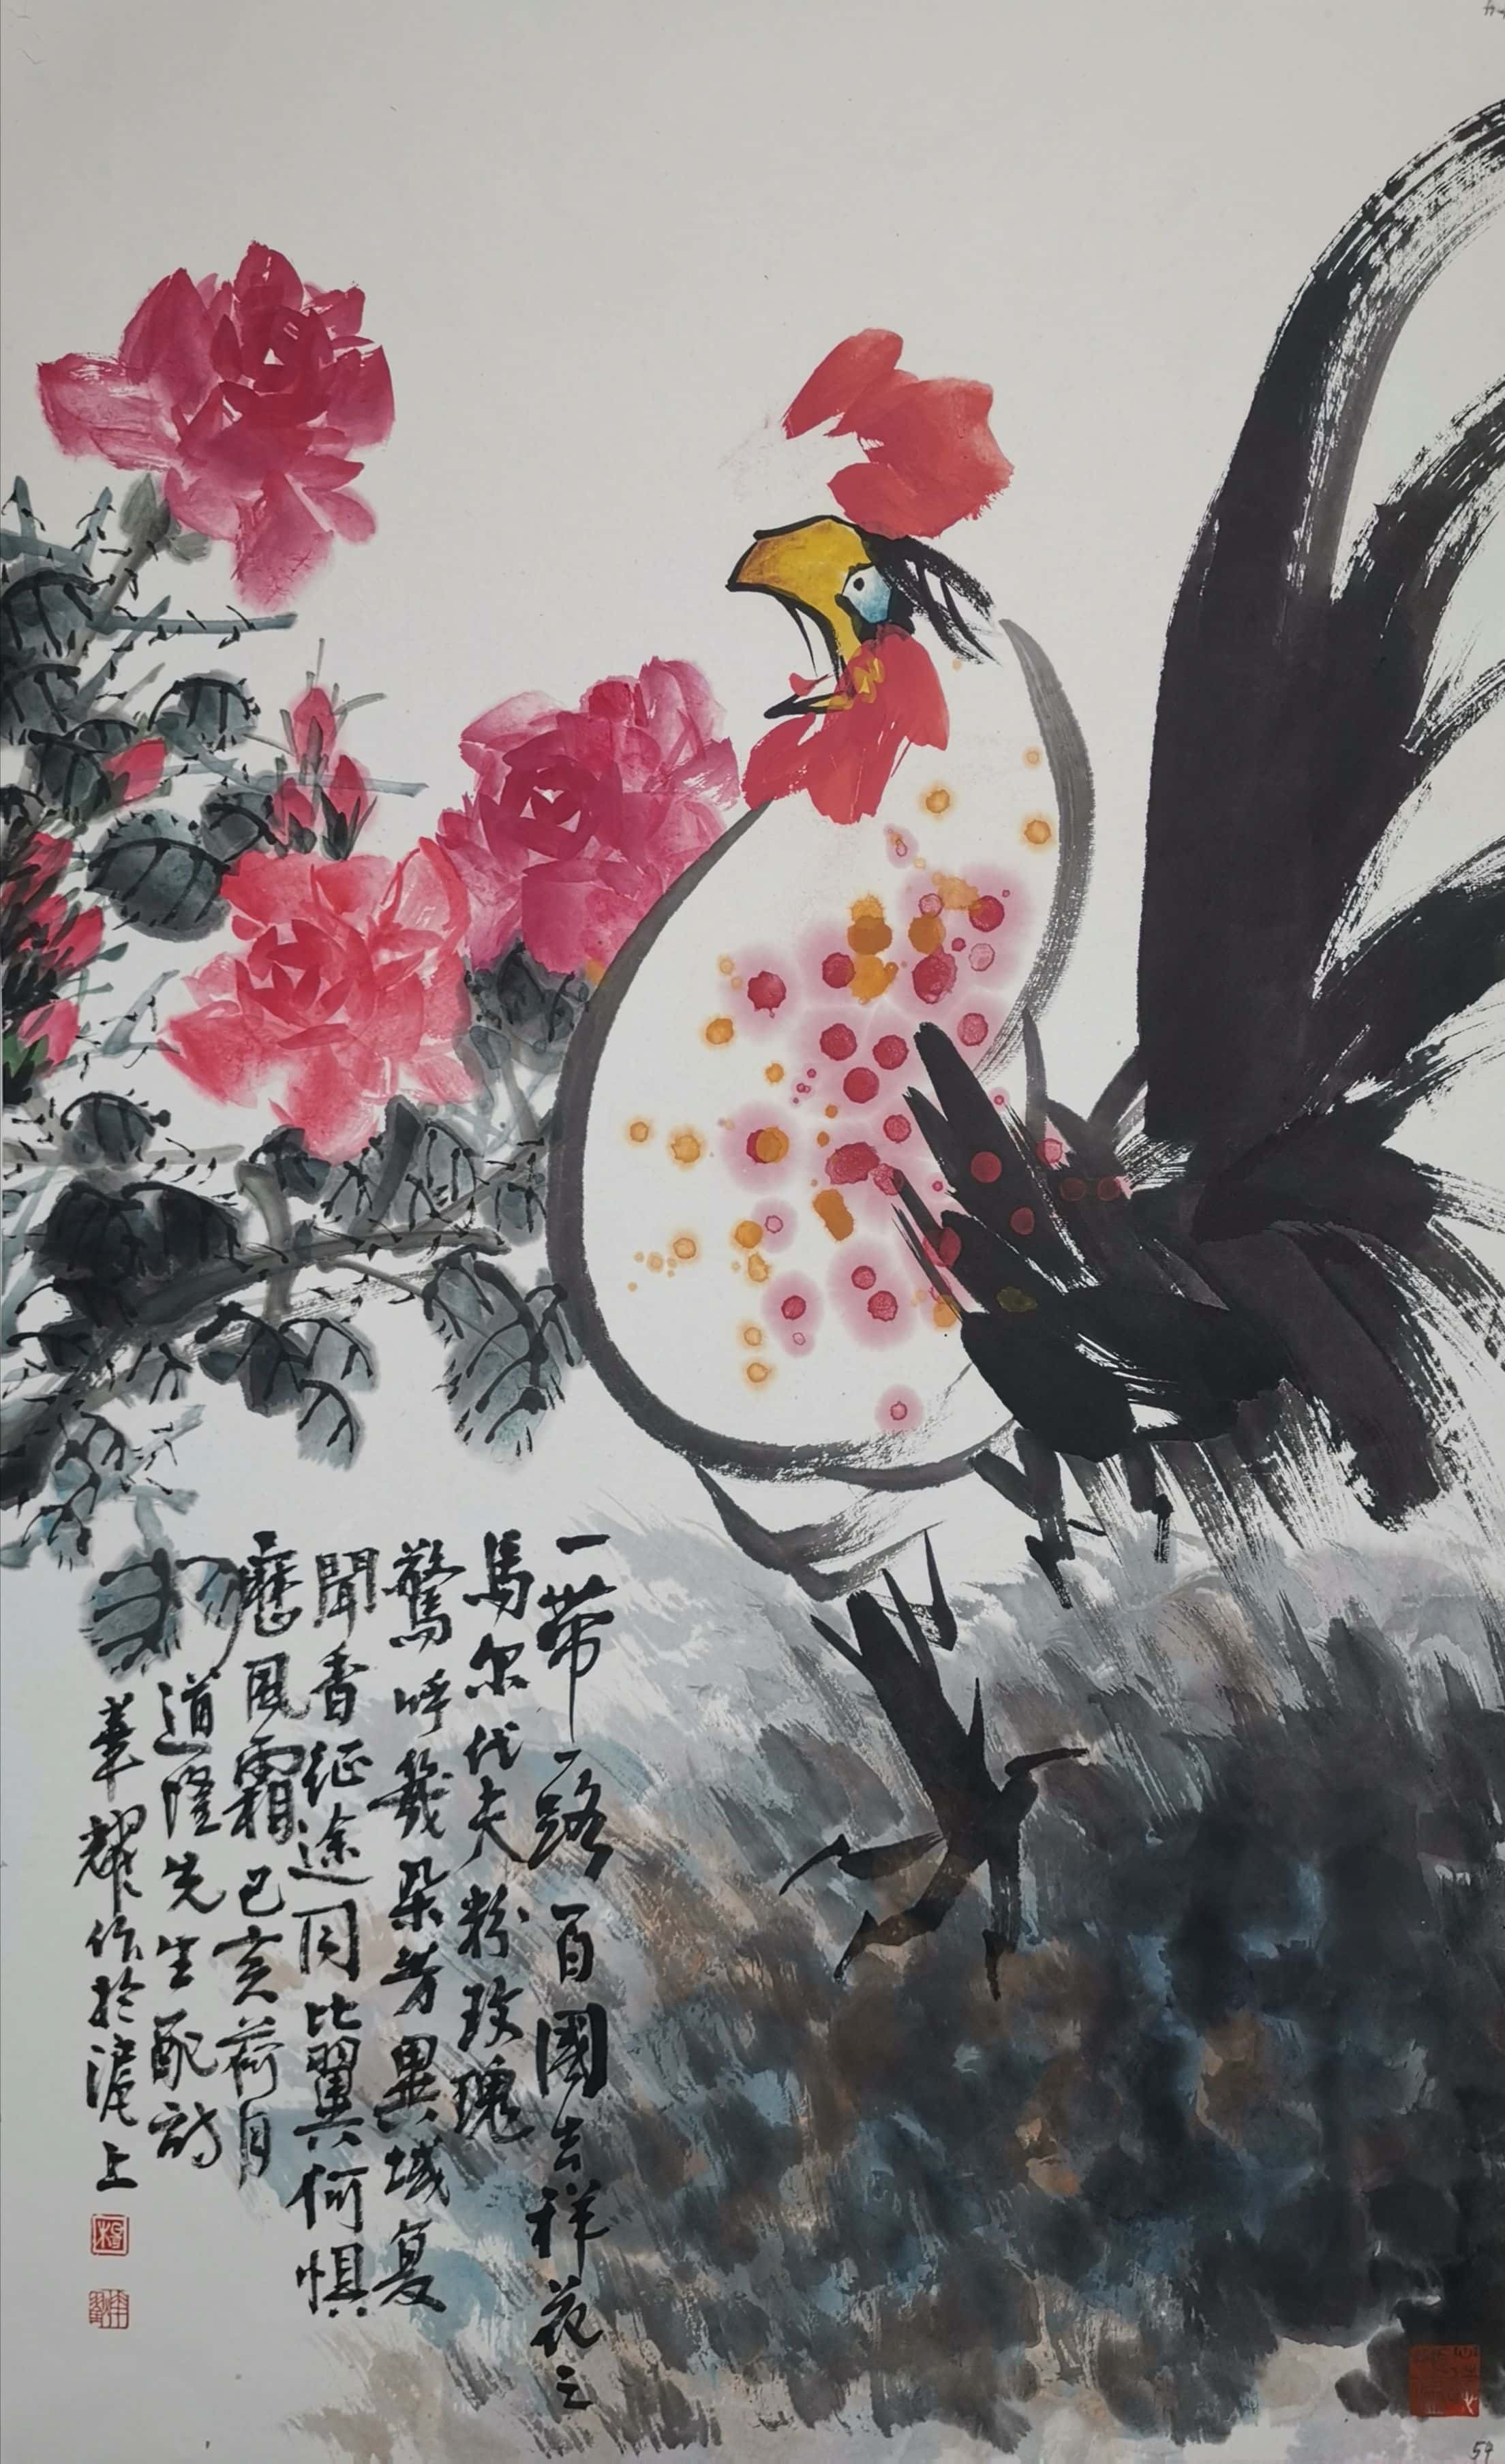 一帶一路百國吉祥花之
馬尔代夫粉玫瑰
驚呼幾朵芳異域复
聞香征途同比翼何懼
歷風霜己亥荷月
道隆先生配詩
華耀作於滬上
54